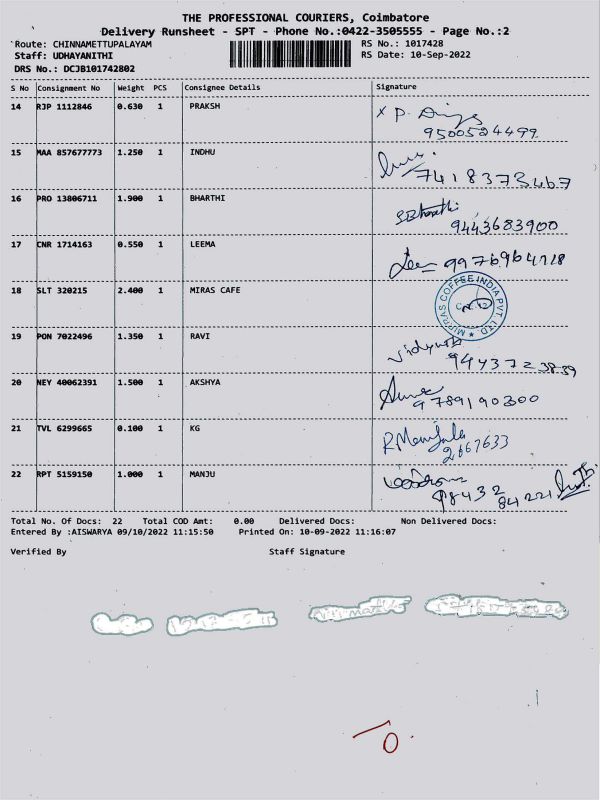 THE PROFESSIONAL COURIERS, Coimbatore
Delivery Runsheet - SPT - Phone No.:0422-3505555 - Page No.:2
Route: CHINNAMETTUPALAYAM RS No.: 1017428
Staff: UDHAYANITHI RS Date: 10-Sep-2022
DRS No.: DCJB101742802
S No Consignment No Weight PCS Consignee Details Signature
14 RJP 1112846 0.630 1 PRAKSH x P.
9500524499
15 MAA 857677773 1.250 1 INDHU
7418373467
16 PRO 13806711 1.900 1 BHARTHI S.Bharathi
9443683900
17 CNR 1714163 0.550 1 LEEMA Lee
18 SLT 320215 2.400 1 MIRAS CAFE MIPRAS COFFEE INDIA PVT. LTD. ★
19 PON 7022496 1.350 1 RAVI
9443723839
20 NEY 40062391 1.500 1 AKSHYA
9789190300
21 TVL 6299665 0.100 1 KG R.Manjula
2667633
22 RPT 5159150 1.000 1 MANJU
98432 84221
Total No. Of Docs: 22 Total COD Amt: 0.00 Delivered Docs: Non Delivered Docs:
Entered By :AISWARYA 09/10/2022 11:15:50 Printed On: 10-09-2022 11:16:07
Verified By Staff Signature